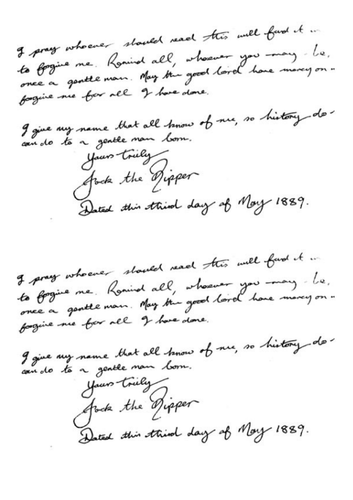 I pray whoever should read this will find it ...
to forgive me. Remind all, whoever you may be,
once a gentle man. May the good lord have mercy on
forgive me for all I have done.
I give my name that all know of me, so history do
can do to a gentle man born.
Yours truly
Jack the Ripper
Dated this third day of May 1889.
I pray whoever should read this will find it ...
to forgive me. Remind all, whoever you may be,
once a gentle man. May the good lord have mercy on
forgive me for all I have done.
I give my name that all know of me, so history do
can do to a gentle man born.
Yours truly
Jack the Ripper
Dated this third day of May 1889.